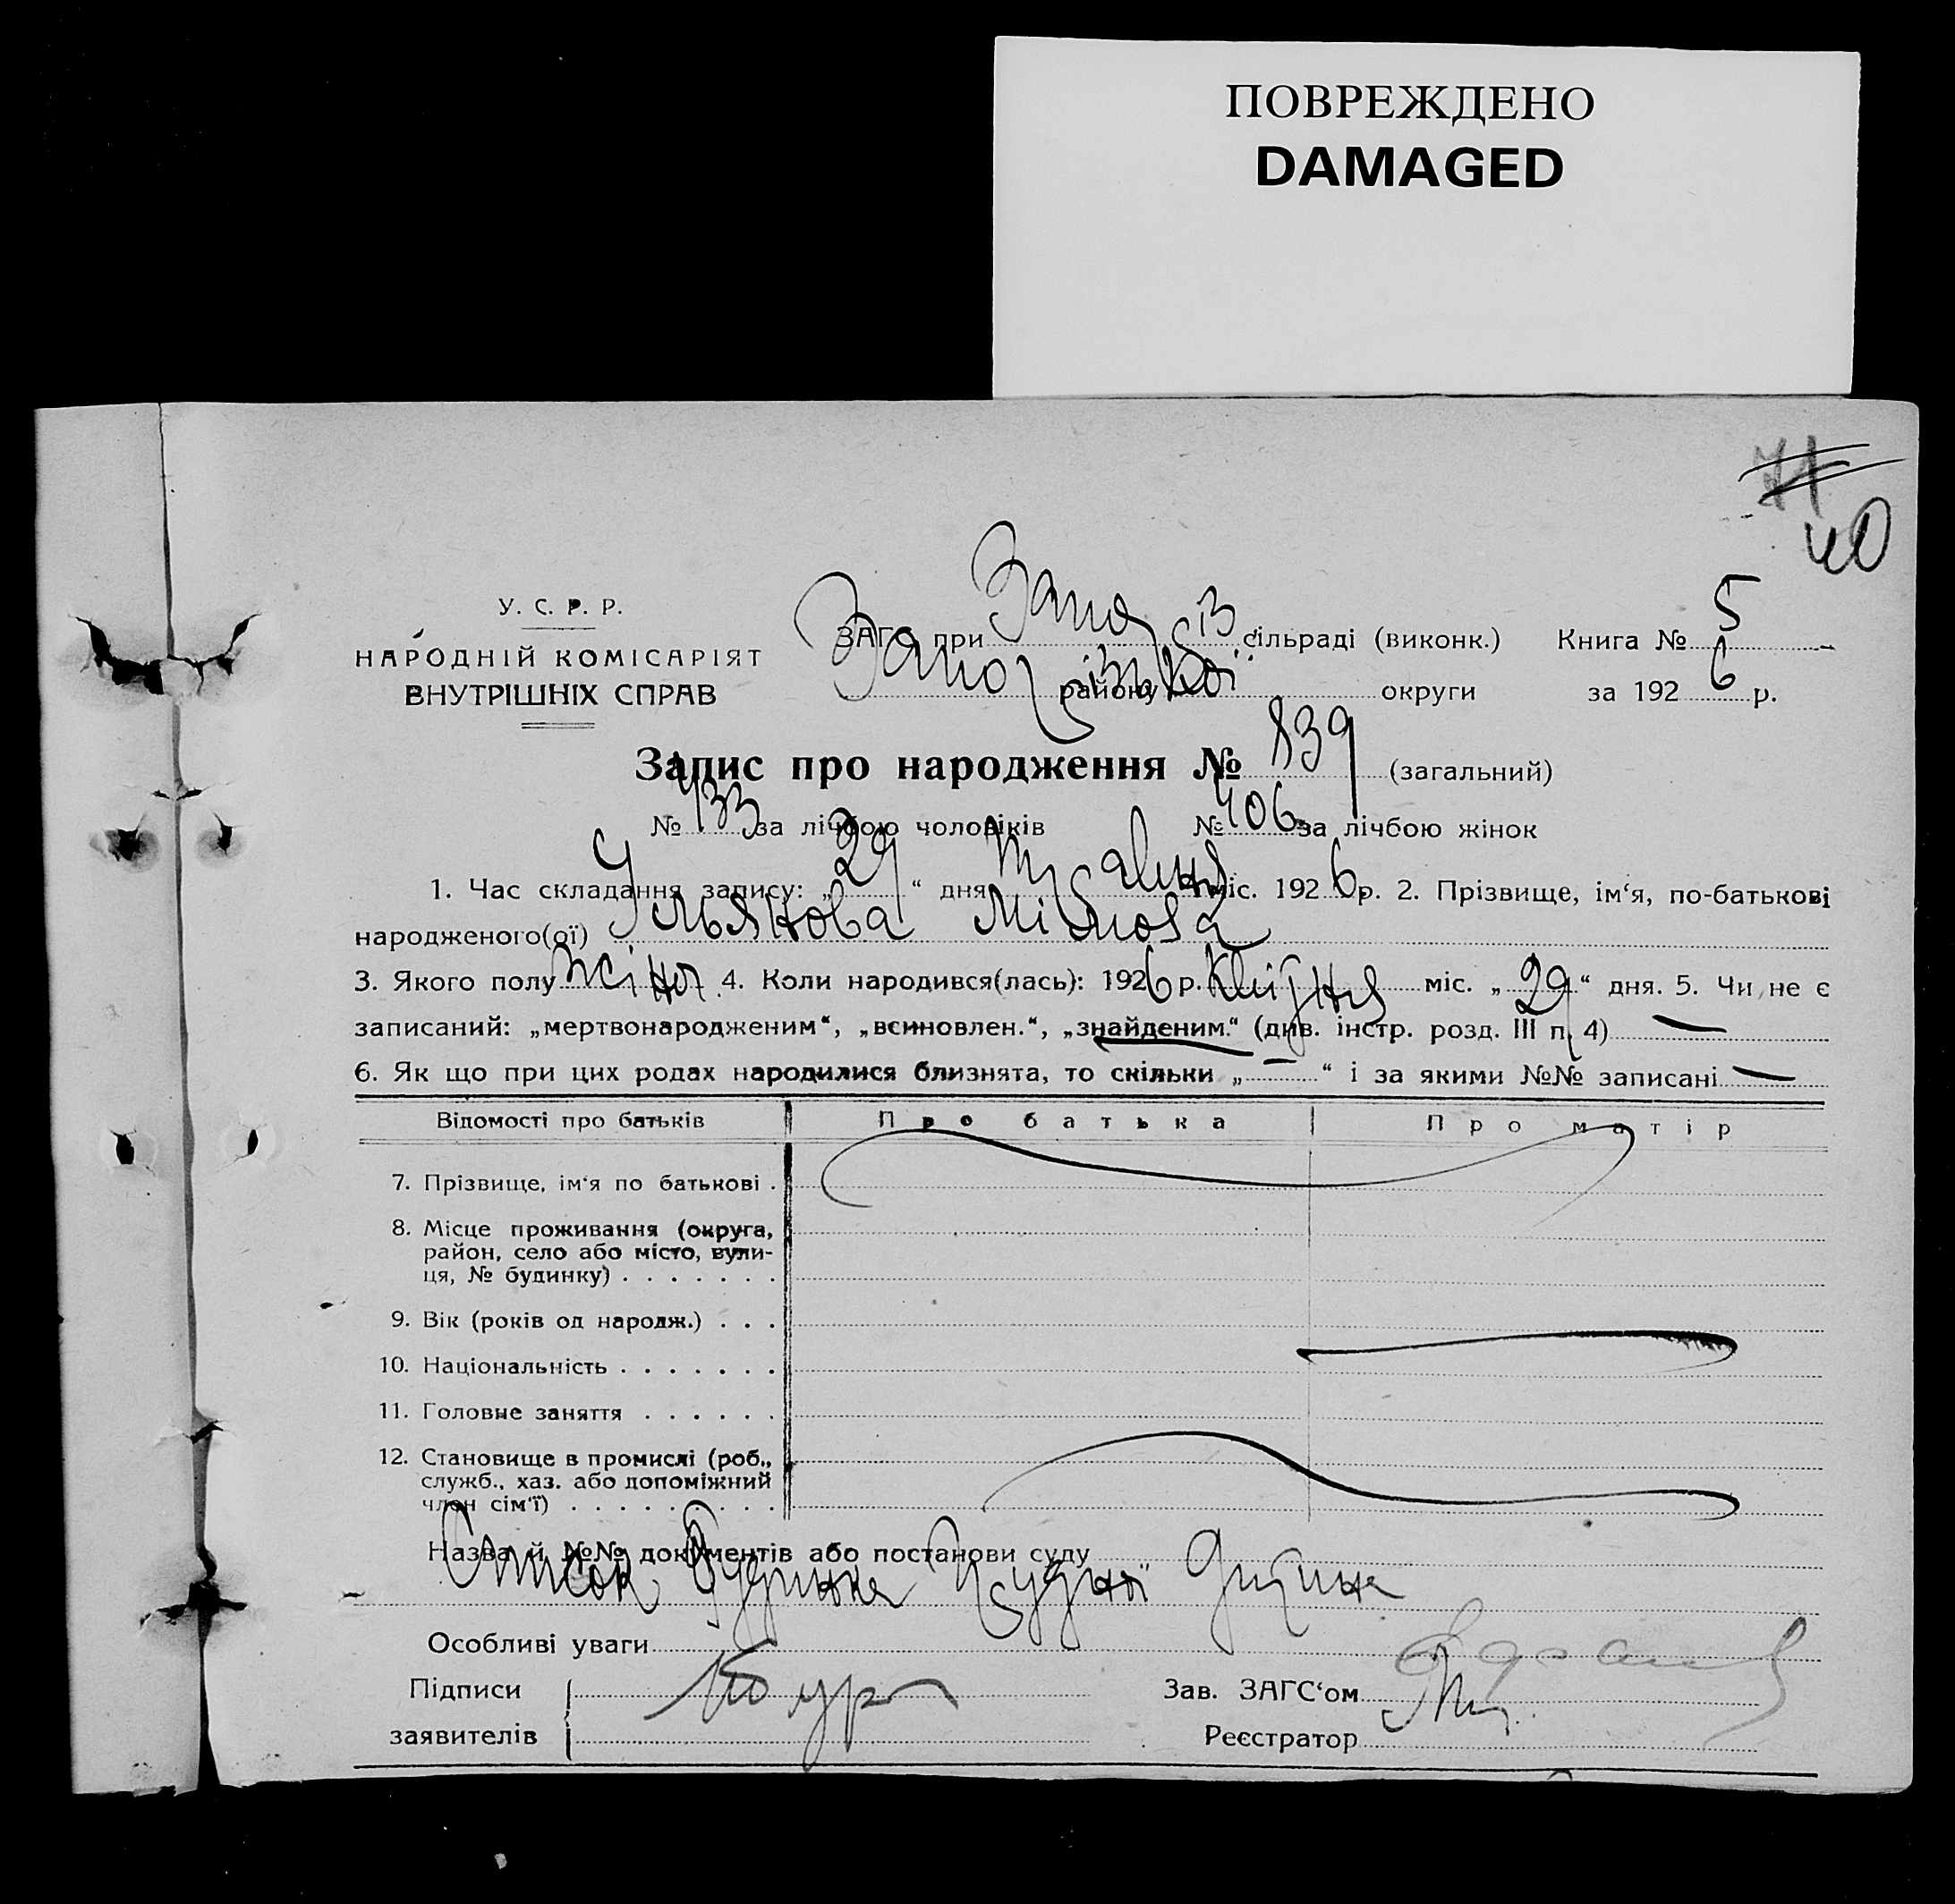 ПОВРЕЖДЕНО
DAMAGED
71
40
У. С. Р. Р.
НАРОДНІЙ КОМІСАРІЯТ
ВНУТРІШНІХ СПРАВ
ЗАГС при сільраді (виконк.) Книга № 5
Запорізької району округи за 1926 р.
Запис про народження № 839 (загальний)
№ 433 за лічбою чоловіків № 406 за лічбою жінок
1. Час складання запису: „29“ дня міс. 1926 р. 2. Прізвище, ім‘я, по-батькові
народженого(ої) Ульянова
3. Якого полу жіно. 4. Коли народився(лась): 1926 р. квітня міс. „29“ дня. 5. Чи не є
записаний: „мертвонародженим“, „всиновлен.“, „знайденим.“ (див. інстр. розд. III п. 4) —
6. Як що при цих родах народилися близнята, то скільки „—“ і за якими №№ записані —
Відомості про батьків Про батька Про матір
7. Прізвище, ім‘я по батькові .
8. Місце проживання (округа,
район, село або місто, вули-
ця, № будинку) . . . . . . .
9. Вік (років од народж.) . . .
10. Національність . . . . . . .
11. Головне заняття . . . . . .
12. Становище в промислі (роб.,
служб., хаз. або допоміжний
член сім‘ї) . . . . . . . . .
Назва й №№ документів або постанови суду
Список
Особливі уваги
Підписи
Зав. ЗАГС‘ом
заявителів
Реєстратор